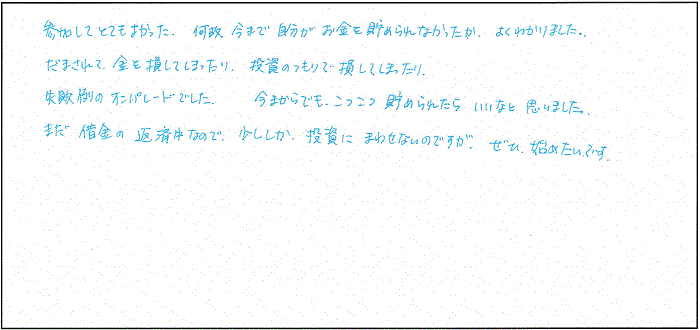 参加してとてもよかった. 何故 今まで 自分が お金を 貯められなかったか. よくわかりました.
だまされて. 金を損してしまったり. 投資のつもりで損してしまったり.
失敗例の オンパレードでした. 今まからでも. こつこつ 貯められたら いいなと 思いました.
まだ 借金の 返済中なので. 少ししか. 投資に まわせないのですが. ぜひ. 始めたいです.